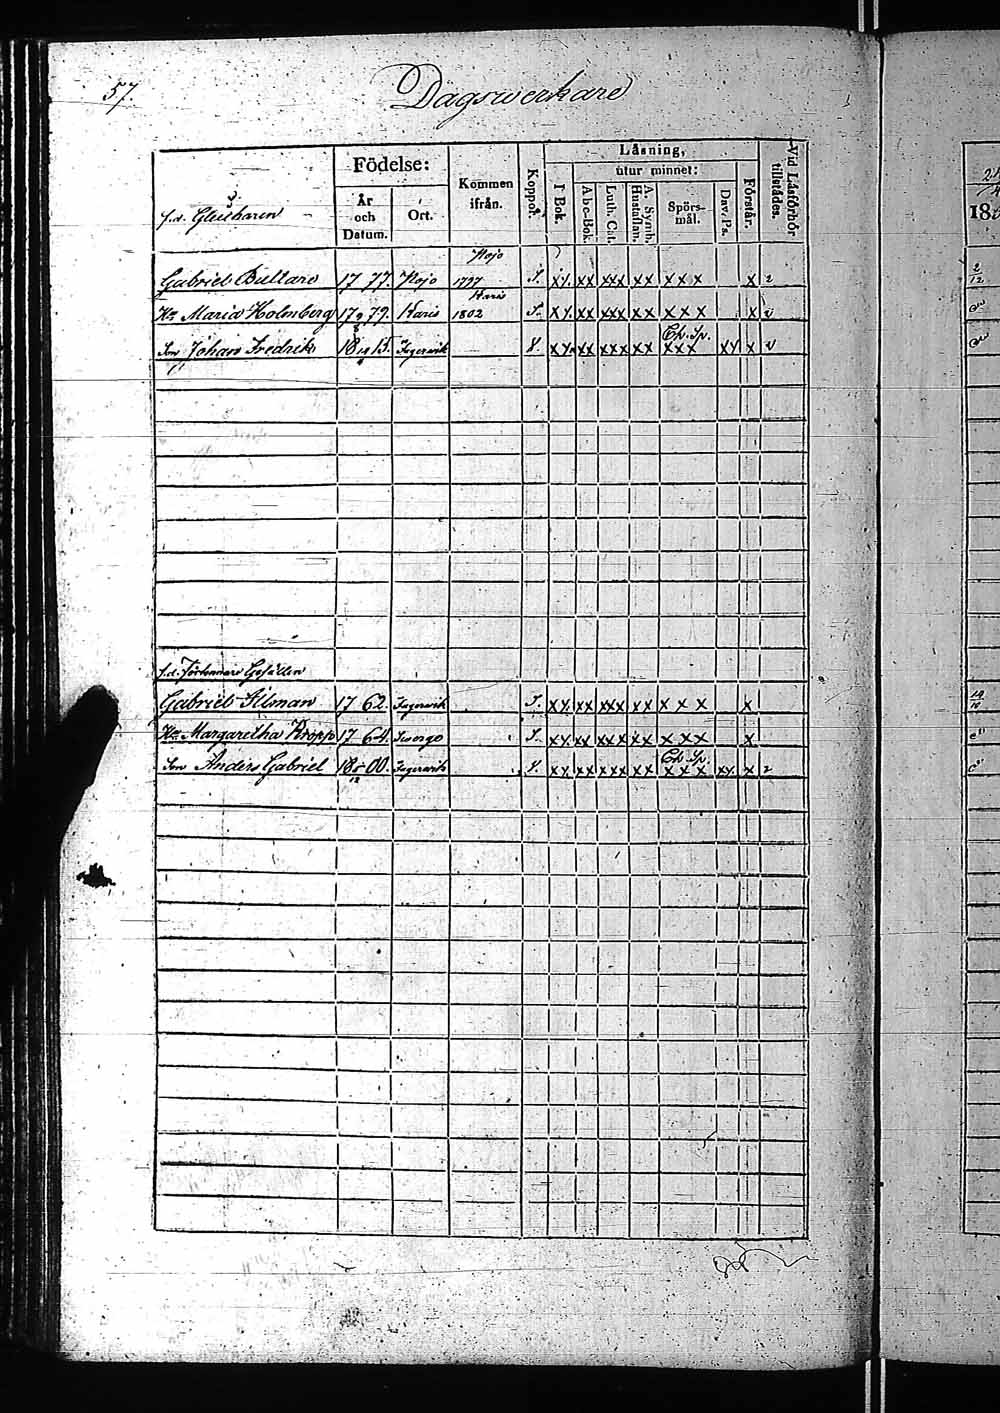 57.
Dagswerkare
Födelse:
År och Datum.
Ort.
Kommen ifrån.
Koppor.
Läsning,
utur minnet:
I Bok.
A b c-Bok.
Luth. Cat.
A. Symb. Hustaflan.
Spörs-mål.
Dav. Ps.
Förstår.
Vid Läsförhör tillstädes.
f.d.
Pojo
Gabriel Bultare 17 77. Pojo 1797 xx xx xxx xx xxx x
Karis
Hu Maria Holmberg 17 79. Karis 1802 xx xx xxx xx xxx x
Son Johan Fredrik 18 15. Fagervik xx xx xxx xx xxx xx x
f.d.
Gabriel Silman 17 62. Fagervik xx xx xxx xx xxx x
Hu Margaretha Kropp 17 64. xx xx xxx xx xxx x
Son Anders Gabriel 18 00. Fagervik xx xx xxx xx xxx xx x